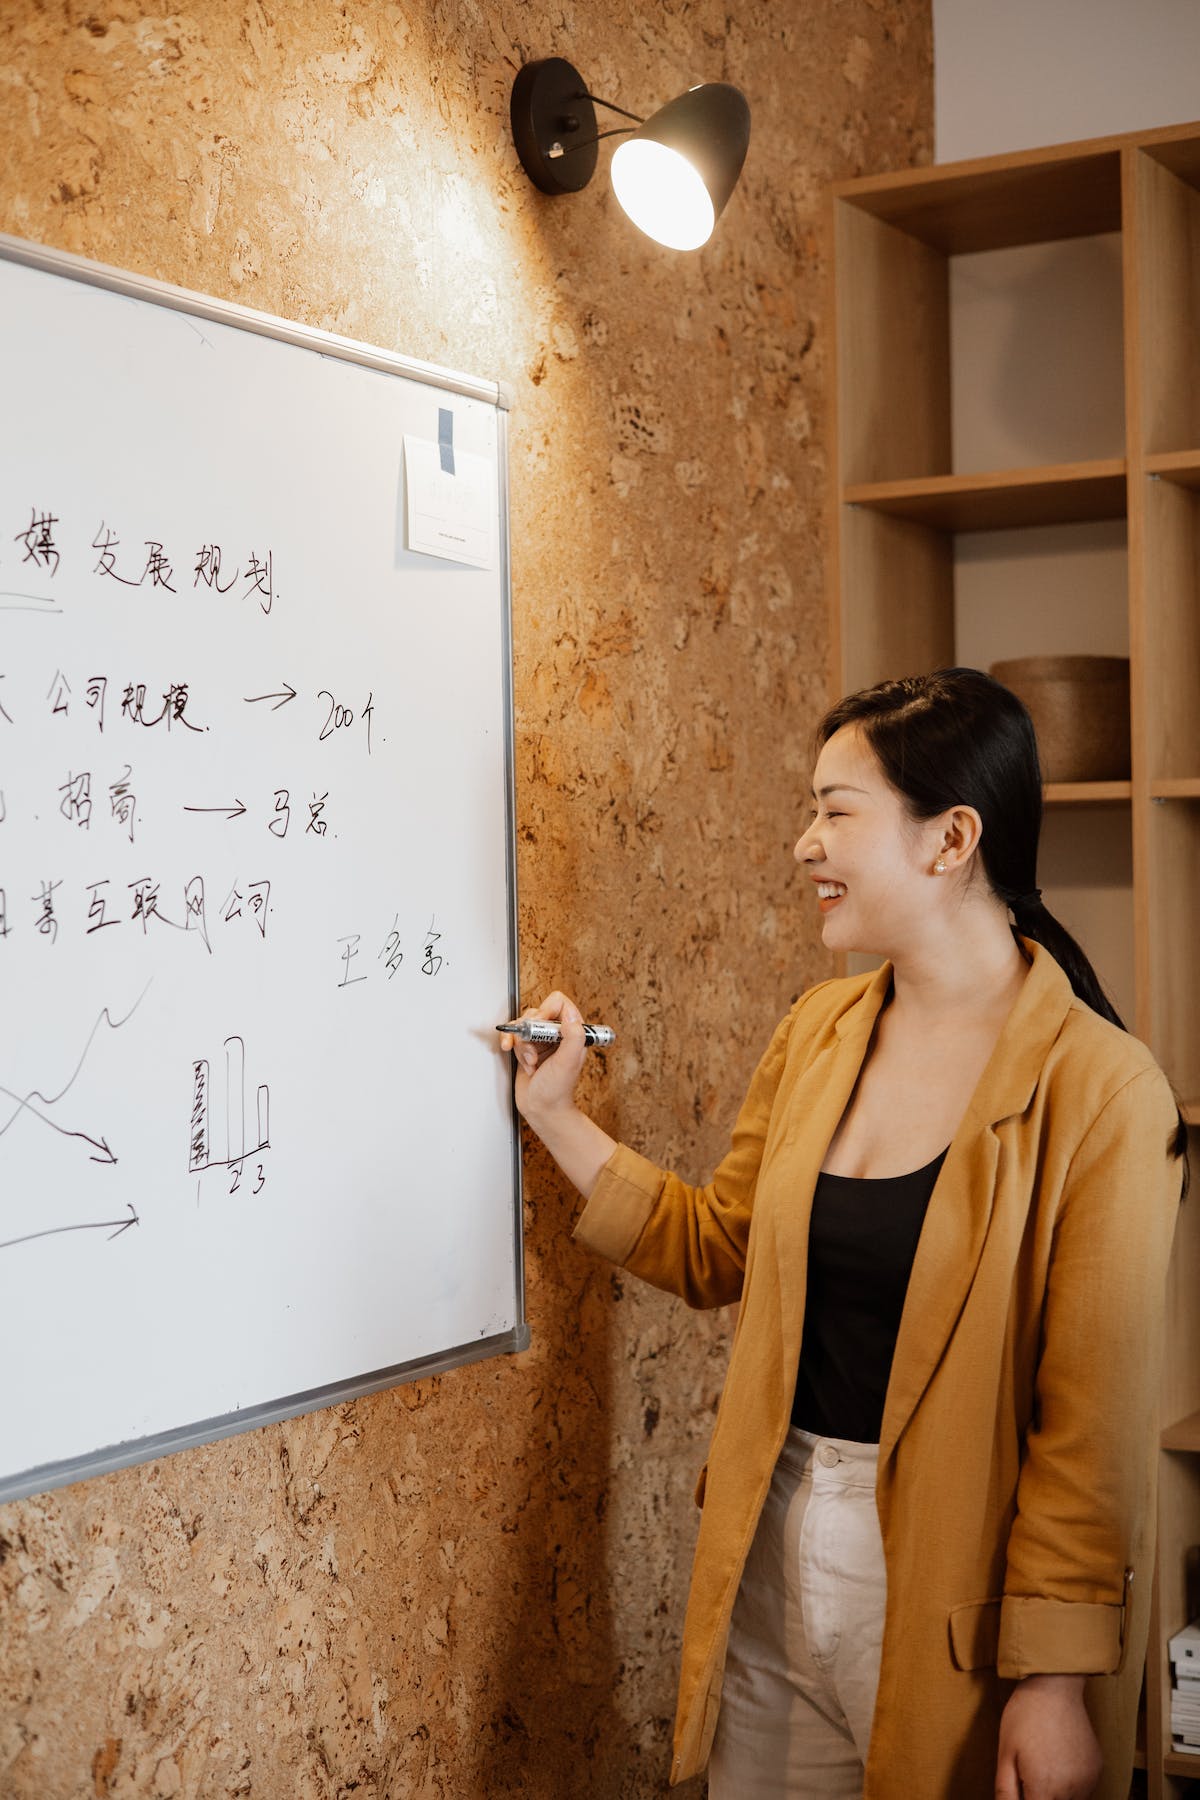 媒发展规划.
公司规模. → 200个.
. 招商. → 马总.
某互联网公司.
王多余.
1 2 3
WHITE